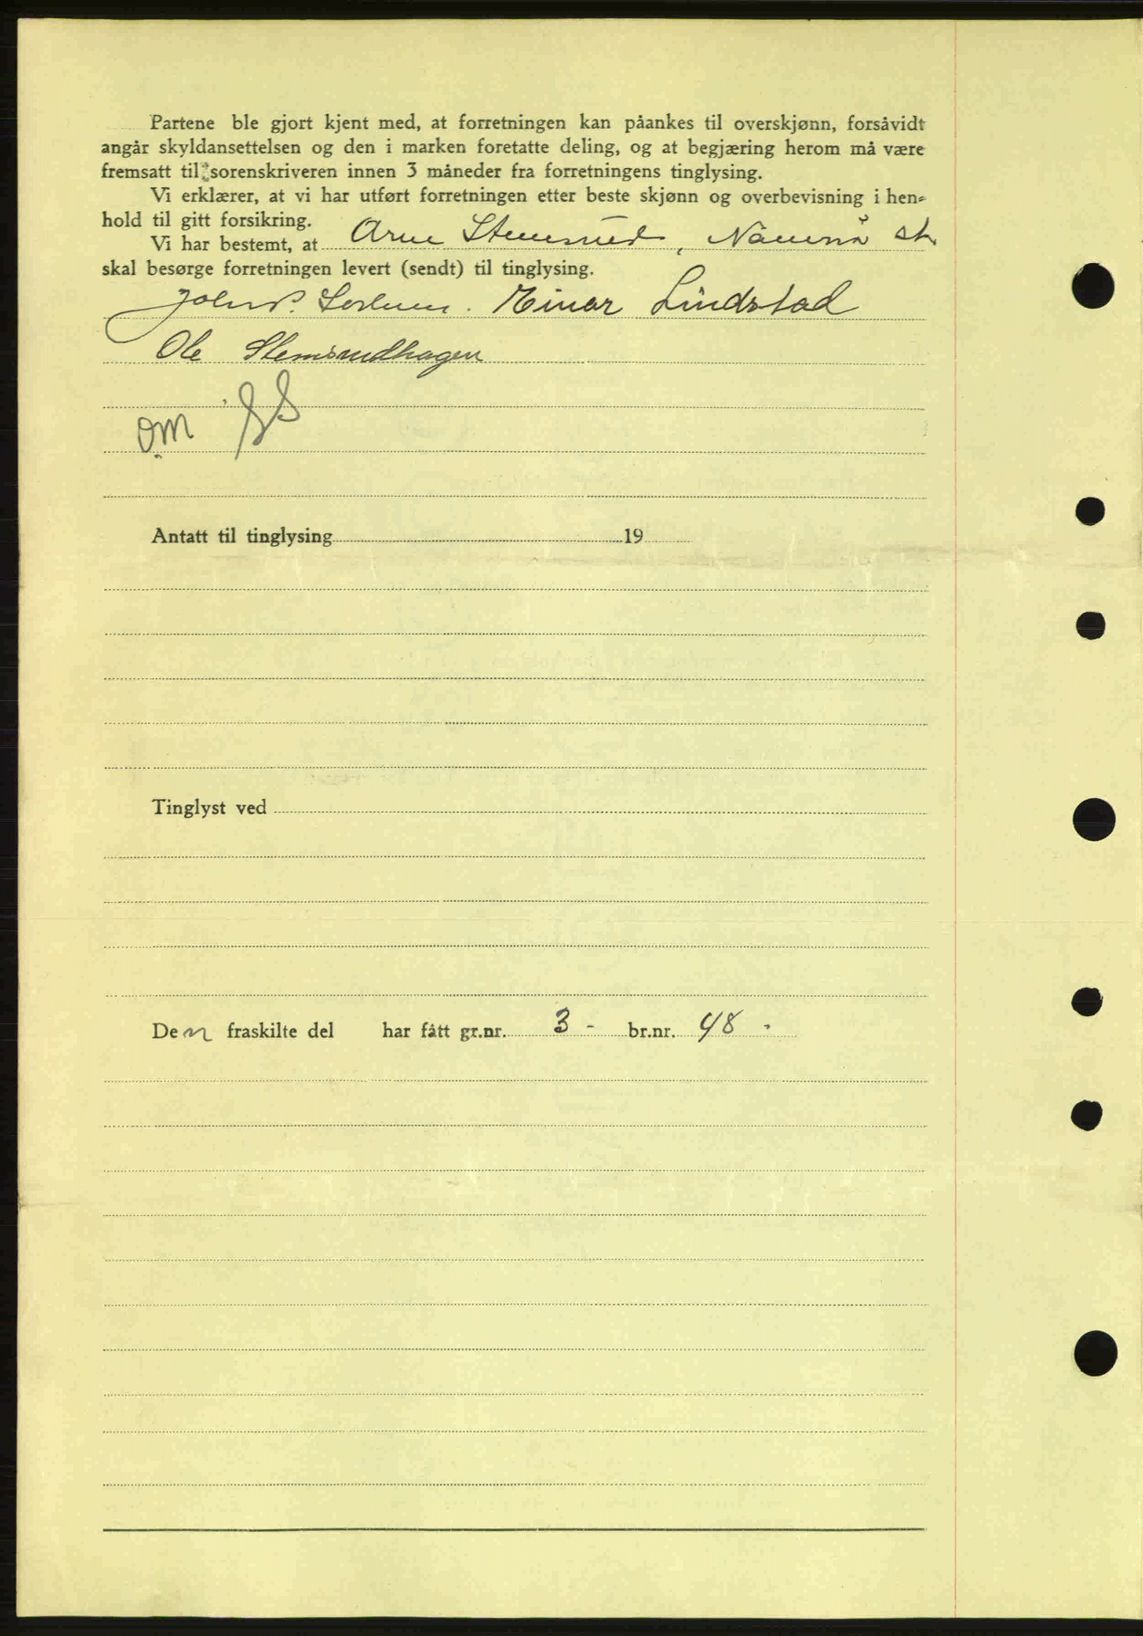 Partene ble gjort kjent med, at forretningen kan påankes til overskjønn, forsåvidt
angår skyldansettelsen og den i marken foretatte deling, og at begjæring herom må være
fremsatt til sorenskriveren innen 3 måneder fra forretningens tinglysing.
Vi erklærer, at vi har utført forretningen etter beste skjønn og overbevisning i hen-
hold til gitt forsikring.
Vi har bestemt, at Arne Stemsrud, Nåmnå st.
skal besørge forretningen levert (sendt) til tinglysing.
Einar Lindstad
Ole Stemsrudhagen
om
Antatt til tinglysing 19
Tinglyst ved
Den fraskilte del har fått gr.nr. 3 - br.nr. 48 -